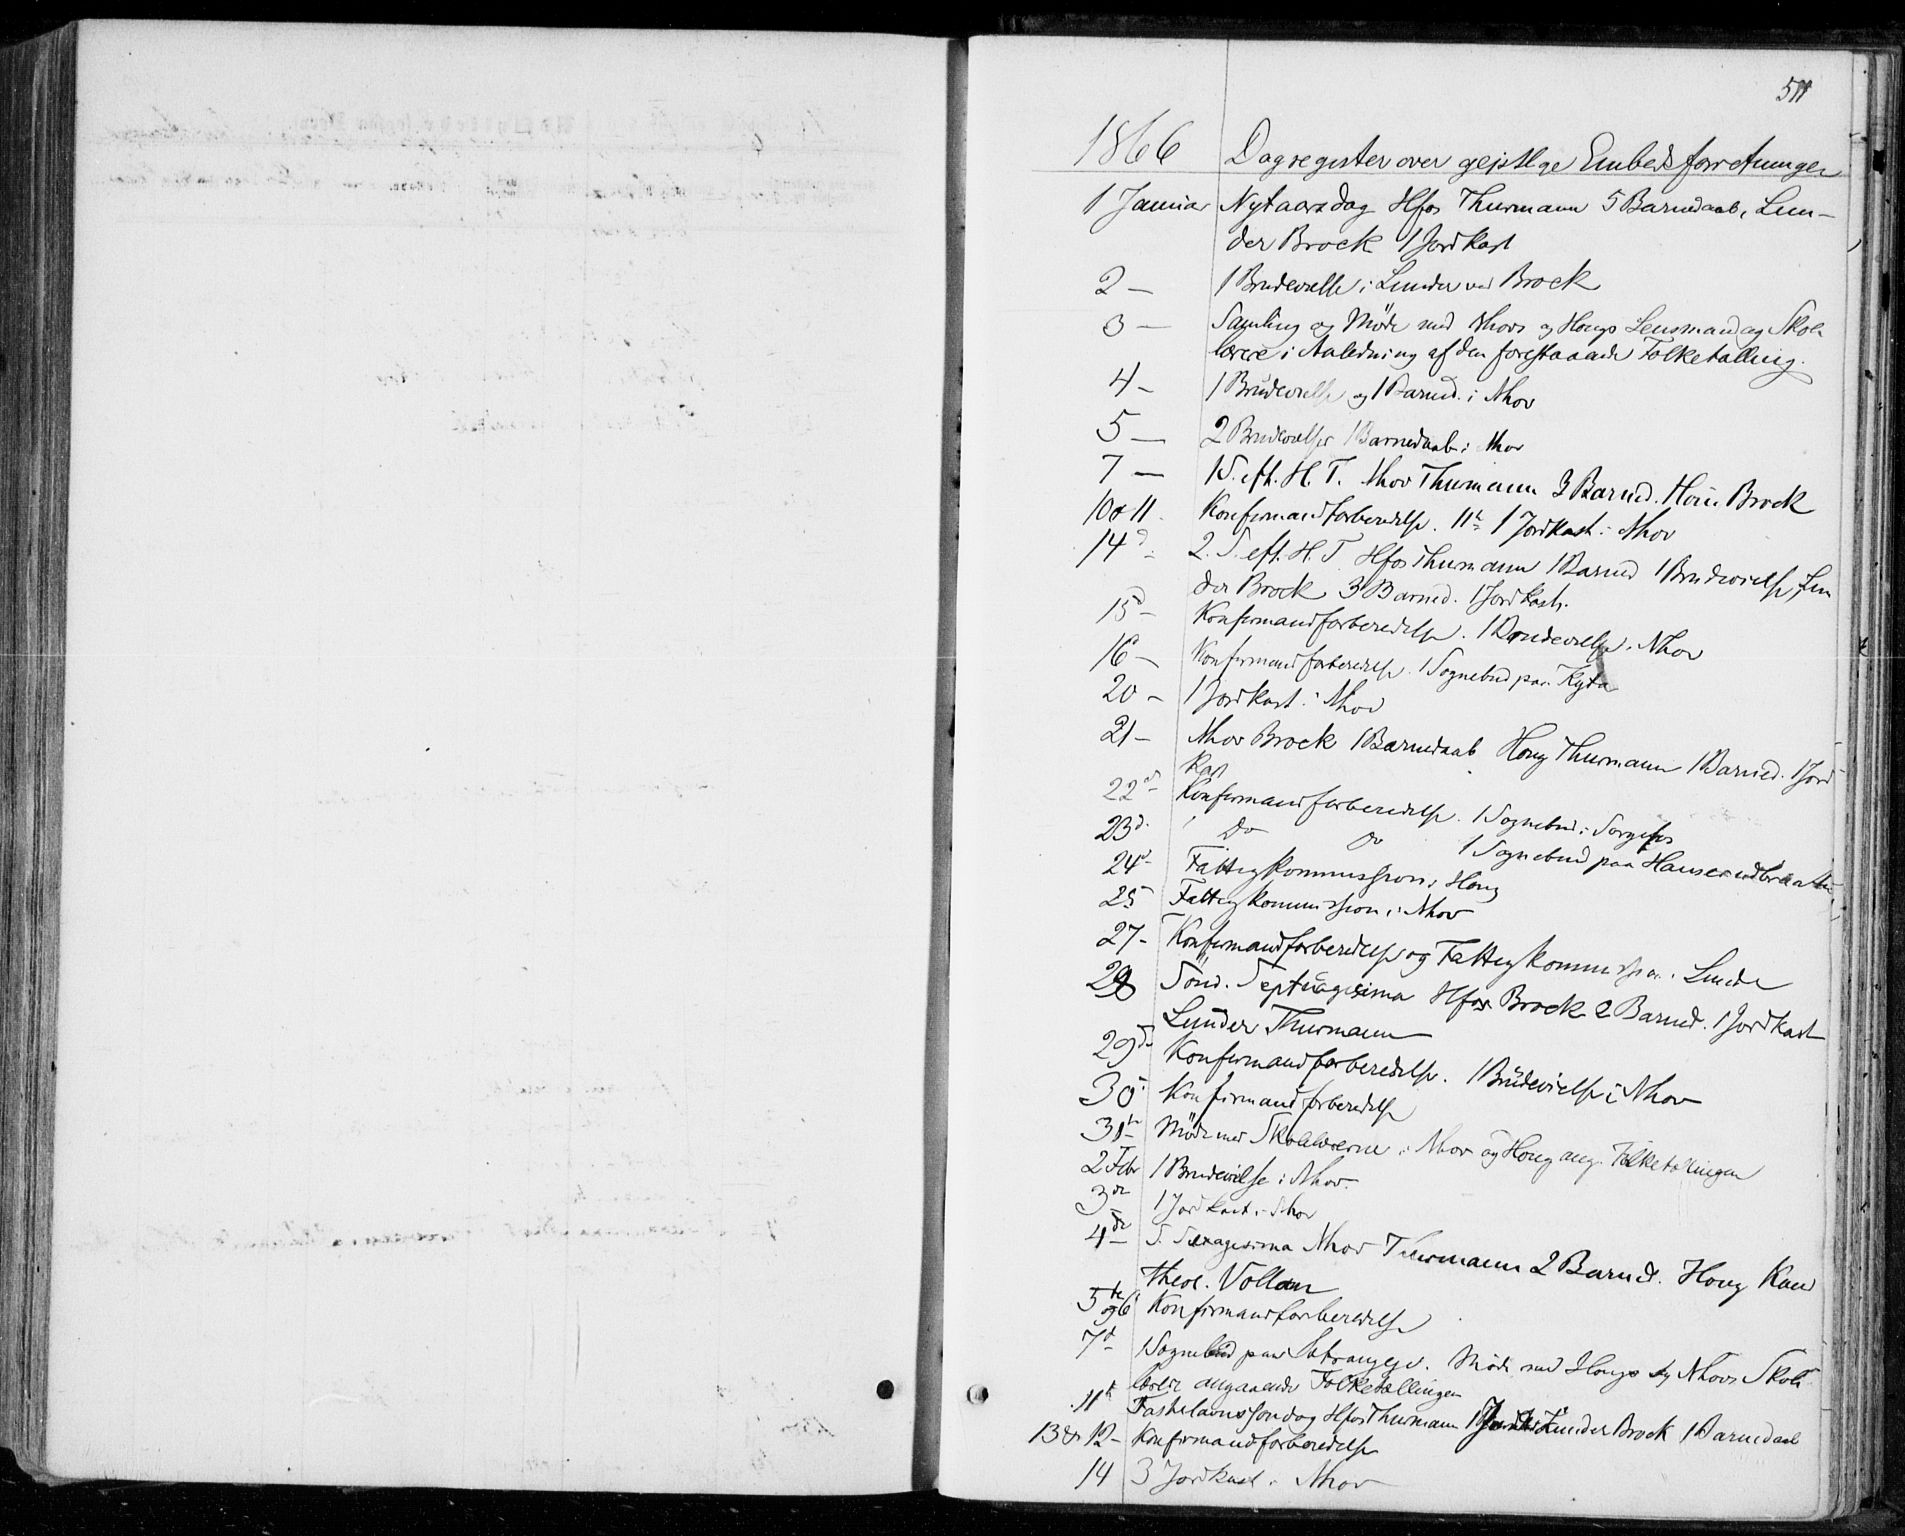 511
1866 Dagregister over gejstlige Embedsforretninger
1 Januar Nytaarsdag Hfos Thurmann 5 Barnedaab, Lun-
der Brock 1 Jordkast
2 — 1 Brudevielse i Lunder ved Brock
3 — Samling og Möde med Nhovs og Hougs Lensmand og Skole
lærere i Anledning af den forestaaende Folketælling.
4 — 1 Brudevielse og 1 Barned. i Nhov
5 — 2 Brudevielser 1 Barnedaab i Nhov
7 — 1 S. eft. H. T. Nhov Thurmann 3 Barned. Houg Brock
10 & 11. Konfirmandforberedelse. 11te 1 Jordkast i Nhov
14d 2. S. eft. H. T. Hfos Thurmann 1 Barned 1 Brudevielse, Lun
der Brock 3 Barned. 1 Jordkast.
15d — Konfirmandforberedelse. 1 Brudevielse i Nhov
16 — Konfirmandforberedelse. 1 Sognebud paa
20 — 1 Jordkast i Nhov
21 — Nhov Brock 1 Barnedaab Houg Thurmann 1 Barned. 1 Jord
kast
22d — Konfirmandforberedelse. 1 Sognebud i
23d. Do Do 1 Sognebud paa
24d Fattigkommission i Houg
25 Fattigkommission i Nhov
27 — Konfirmandforberedelse og Fattigkommission i Lunder
28 Sönd. Septuagesima Hfos Brock 2 Barned. 1 Jordkast
Lunder Thurmann
29d Konfirmandforberedelse. 1 Brudevielse i Nhov
30 Konfirmandforberedelse
31te Möde med Skolelærerne i Nhov og Houg ang. Folketællingen
2 Febr 1 Brudevielse i Nhov.
3de 1 Jordkast i Nhov
4de S. Sexagesima Nhov Thurmann 2 Barned. Houg Kand
theol. Vollan
5te og 6 Konfirmandforberedelse
7d 1 Sognebud paa Möde med Hougs og Nhovs Skole
lærere angaaende Folketællingen
11te Fastelavnssondag Hfos Thurmann Lunder Brock 1 Barnedaab
13 & 12 — Konfirmandforberedelse
14 3 Jordkast i Nhov